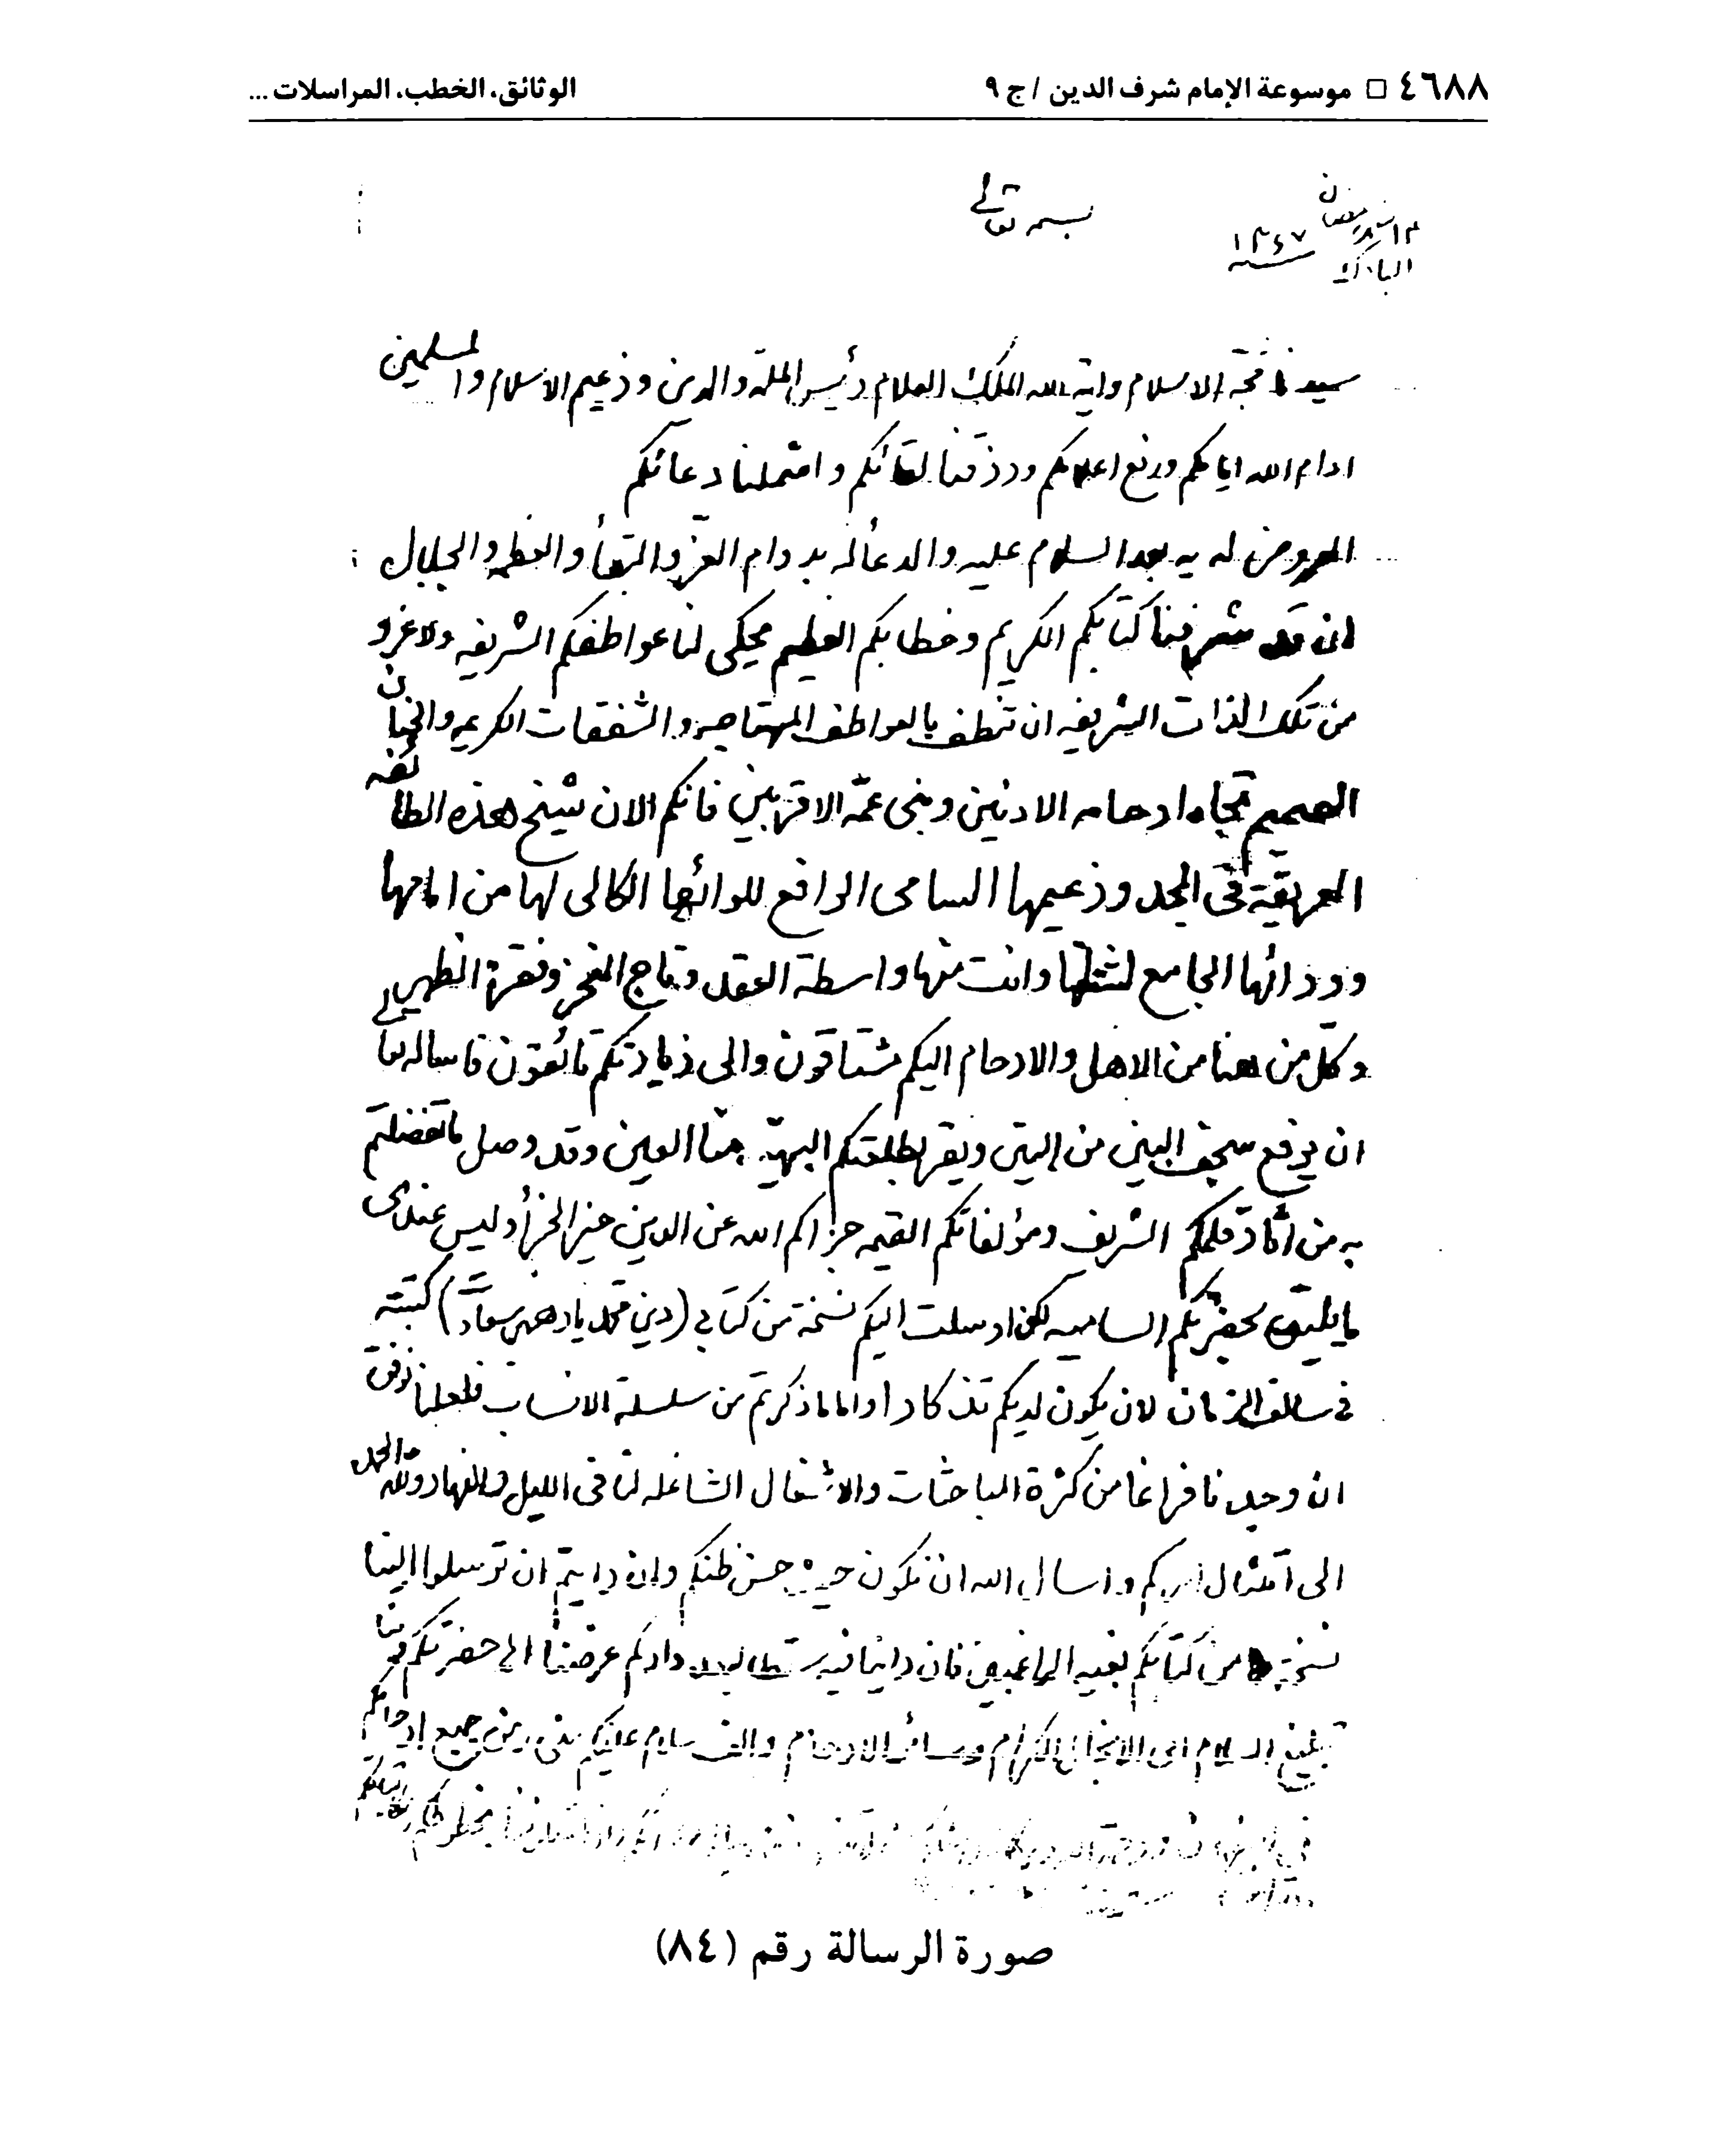 ٤٦٨٨ □ موسوعة الإمام شرف الدين / ج ٩
الوثائق، الخطب، المراسلات ...
بسمه تعالى
رمضان
المبارك ١٣٤٧
سيدنا حجة الاسلام واية الله الملك العلام رئيس الملة والدين وزعيم الاسلام والمسلمين
ادام الله ايامكم ورفع اعلامكم ورزقنا لقائكم واشملنا دعائكم
المعروض لديه بعد السلام عليه والدعأ له بدوام العز والبقأ والعظمه والجلال
ان قد شرفنا كتابكم الكريم وخطابكم العظيم يحكى لنا عواطفكم الشريفه ولا غرو
من تلك الذات الشريفه ان تعطف بالعواطف والشفقات الكريمه والحنان
الصميم تجاه ارحامه الادنين وبنى عمه الاقربين فانكم الان شيخ هذه الطائفه
العريقة فى المجد وزعيمها السامى الرافع للوائها الكالى لها من امامها
وورائها الجامع لشتاتها وانت منها واسطة العقد وتاج الفخر وفقرة الظهر
وكل من هنا من الاهل والارحام اليكم مشتاقون والى زيارتكم تائقون فاساله تعالى
ان يرفع سجف البين من البين ويقر بطلعتكم البهية منا العين وقد وصل ما تفضلتم
به من اثار قلمكم الشريف ومؤلفاتكم القيمه جزاكم الله عن الدين خير الجزأ وليس عندى
ما يليق بحضرتكم الساميه لكن ارسلت اليكم نسخة من كتابي (دين محمد يا رهبر سعادت) كتبته
في سالف الزمان لان يكون لديكم تذكارا واما ما ذكرتم من سلسلة الانساب فلعلنا نوفق
ان وجدنا فراغا من كثرة المباحثات والاشغال الشاغله لنا فى الليل والنهار ولله الحمد
الى امتثال امركم واسال الله ان نكون حسن ظنكم وان رايتم ان ترسلوا الينا
نسخة من كتابكم بغية الراغبين فان راينا فيه عرضنا الى حضرتكم منا
تبليغ السلام الى الانجال الكرام وسائر الارحام والف سلام عليكم منى ومن جميع ارحامكم
صورة الرسالة رقم (٨٤)